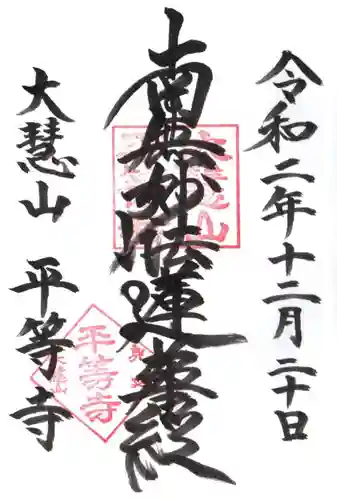 令和二年十二月二十日
南無妙法蓮華経
大慧山 平等寺
平等寺